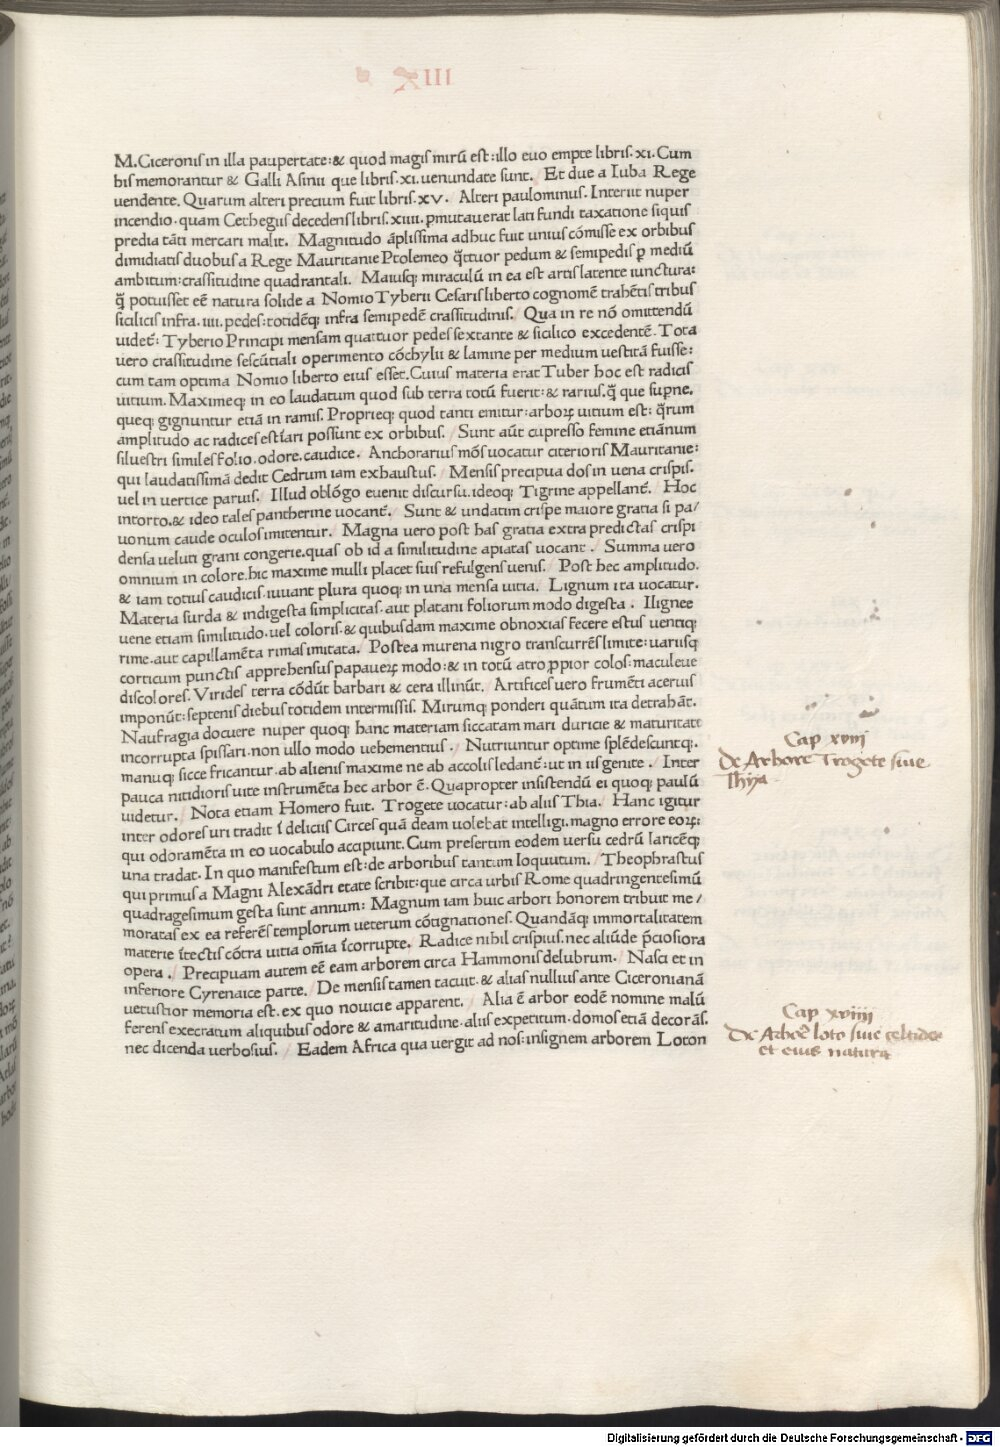 M. Ciceronis in illa paupertate: & quod magis mirū est: illo euo empte libris. XI. Cum
bis memorantur & Galli Asinii que libris. XI. uenundate sunt. Et due a Iuba Rege
uendente. Quarum alteri precium fuit libris. XV. Alteri paulominus. Interiit nuper
incendio. quam Cethegiis decedens libris. XIIII. pmutauerat lati fundi taxatione siquis
predia tāti mercari malit. Magnitudo āplissima adhuc fuit unius cómisse ex orbibus
dimidiatis duobus a Rege Mauritanie Ptolemeo q̄ttuor pedum & semipedis p mediū
ambitum: crassitudine quadrantali. Maiusq; miraculū in ea est artis latente iunctura:
q̄ potuisset eē natura solide a Nomio Tyberii Cesaris liberto cognomē trahētis tribus
sicilicis infra. IIII. pedes: totidēq; infra semipedē crassitudinis. Qua in re nō omittendū
uidet̄: Tyberio Principi mensam quattuor pedes sextante & sicilico excedentē. Tota
uero crassitudine sescūtiali operimento cóchylii & lamine per medium uestitā fuisse:
cum tam optima Nomio liberto eius esset. Cuius materia erat Tuber hoc est radicis
uitium. Maximeq; in eo laudatum quod sub terra totū fuerit: & rarius. q̄ que supne.
queq; gignuntur etiā in ramis. Proprieq; quod tanti emitur: arboꝝ uitium est: q̄rum
amplitudo ac radices estīari possunt ex orbibus. Sunt aūt cupresso femine etiānum
siluestri similes folio. odore. caudice. Anchorarius mōs uocatur citerioris Mauritanie:
qui laudatissimā dedit Cedrum iam exhaustus. Mensis precipua dos in uena crispis.
uel in uertice paruis. Illud oblógo euenit discursu. ideoq; Tigrine appellant̄. Hoc
intorto. & ideo tales pantherine uocant̄. Sunt & undatim crispe maiore gratia si pa/
uonum caude oculos imitentur. Magna uero post has gratia extra predictas crispi
densa ueluti grani congerie. quas ob id a similitudine apiatas uocant. Summa uero
omnium in colore. hic maxime mulli placet suis refulgens uenis. Post hec amplitudo.
& iam totius caudicis iuuant plura quoq; in una mensa uitia. Lignum ita uocatur.
Materia surda & indigesta simplicitas. aut platani foliorum modo digesta. Ilignee
uene etiam similitudo. uel coloris. & quibusdam maxime obnoxias fecere estus uentiq;
rime. aut capillamēta rimas imitata. Postea murena nigro transcurrēs limite: uariisq
corticum punctis apprehensus papaueꝝ modo: & in totū atro ppior colos: maculeue
discolores. Virides terra códūt barbari & cera illinūt. Artifices uero frumēti aceruis
imponūt: septenis diebus totidem intermissis. Mirumq; ponderi quātum ita detrahāt.
Naufragia docuere nuper quoq; hanc materiam siccatam mari duricie & maturitate
incorrupta spissari. non ullo modo uehementius. Nutriuntur optime splēdescuntq;.
manuq; sicce fricantur. ab alienis maxime ne ab accolis ledant̄: ut in iis genite. Inter
pauca nitidioris uite instrumēta hec arbor ē. Quapropter insistendū ei quoq; paulū
uidetur. Nota etiam Homero fuit. Trogete uocatur: ab aliis Thia. Hanc igitur
inter odores uri tradit ī deliciis Circes quā deam uolebat intelligi. magno errore eoꝝ:
qui odoramēta in eo uocabulo accipiunt. Cum presertim eodem uersu cedrū laricēq;
una tradat. In quo manifestum est: de arboribus tantum loquutum. Theophrastus
qui primus a Magni Alexādri etate scribit: que circa urbis Rome quadringentesimū
quadragesimum gesta sunt annum: Magnum iam huic arbori honorem tribuit me/
moratas ex ea referēs templorum ueterum cótignationes. Quandāq; immortalitatem
materie ī tectis cótra uitia om̄ia īcorrupte. Radice nihil crispius. nec aliūde pciosiora
opera. Precipuam autem eē eam arborem circa Hammonis delubrum. Nasci et in
inferiore Cyrenaice parte. De mensis tamen tacuit. & alias nullius ante Ciceronianā
uetustior memoria est. ex quo nouicie apparent. Alia ē arbor eodē nomine malū
ferens execratum aliquibus odore & amaritudine. aliis expetitum. domos etiā decorās.
nec dicenda uerbosius. Eadem Africa qua uergit ad nos: insignem arborem Loton
Cap xviij
De Arbore Trogete siue
Thija
Cap xviiij
De Arbore loto siue celtide
et eius natura
Digitalisierung gefördert durch die Deutsche Forschungsgemeinschaft - DFG